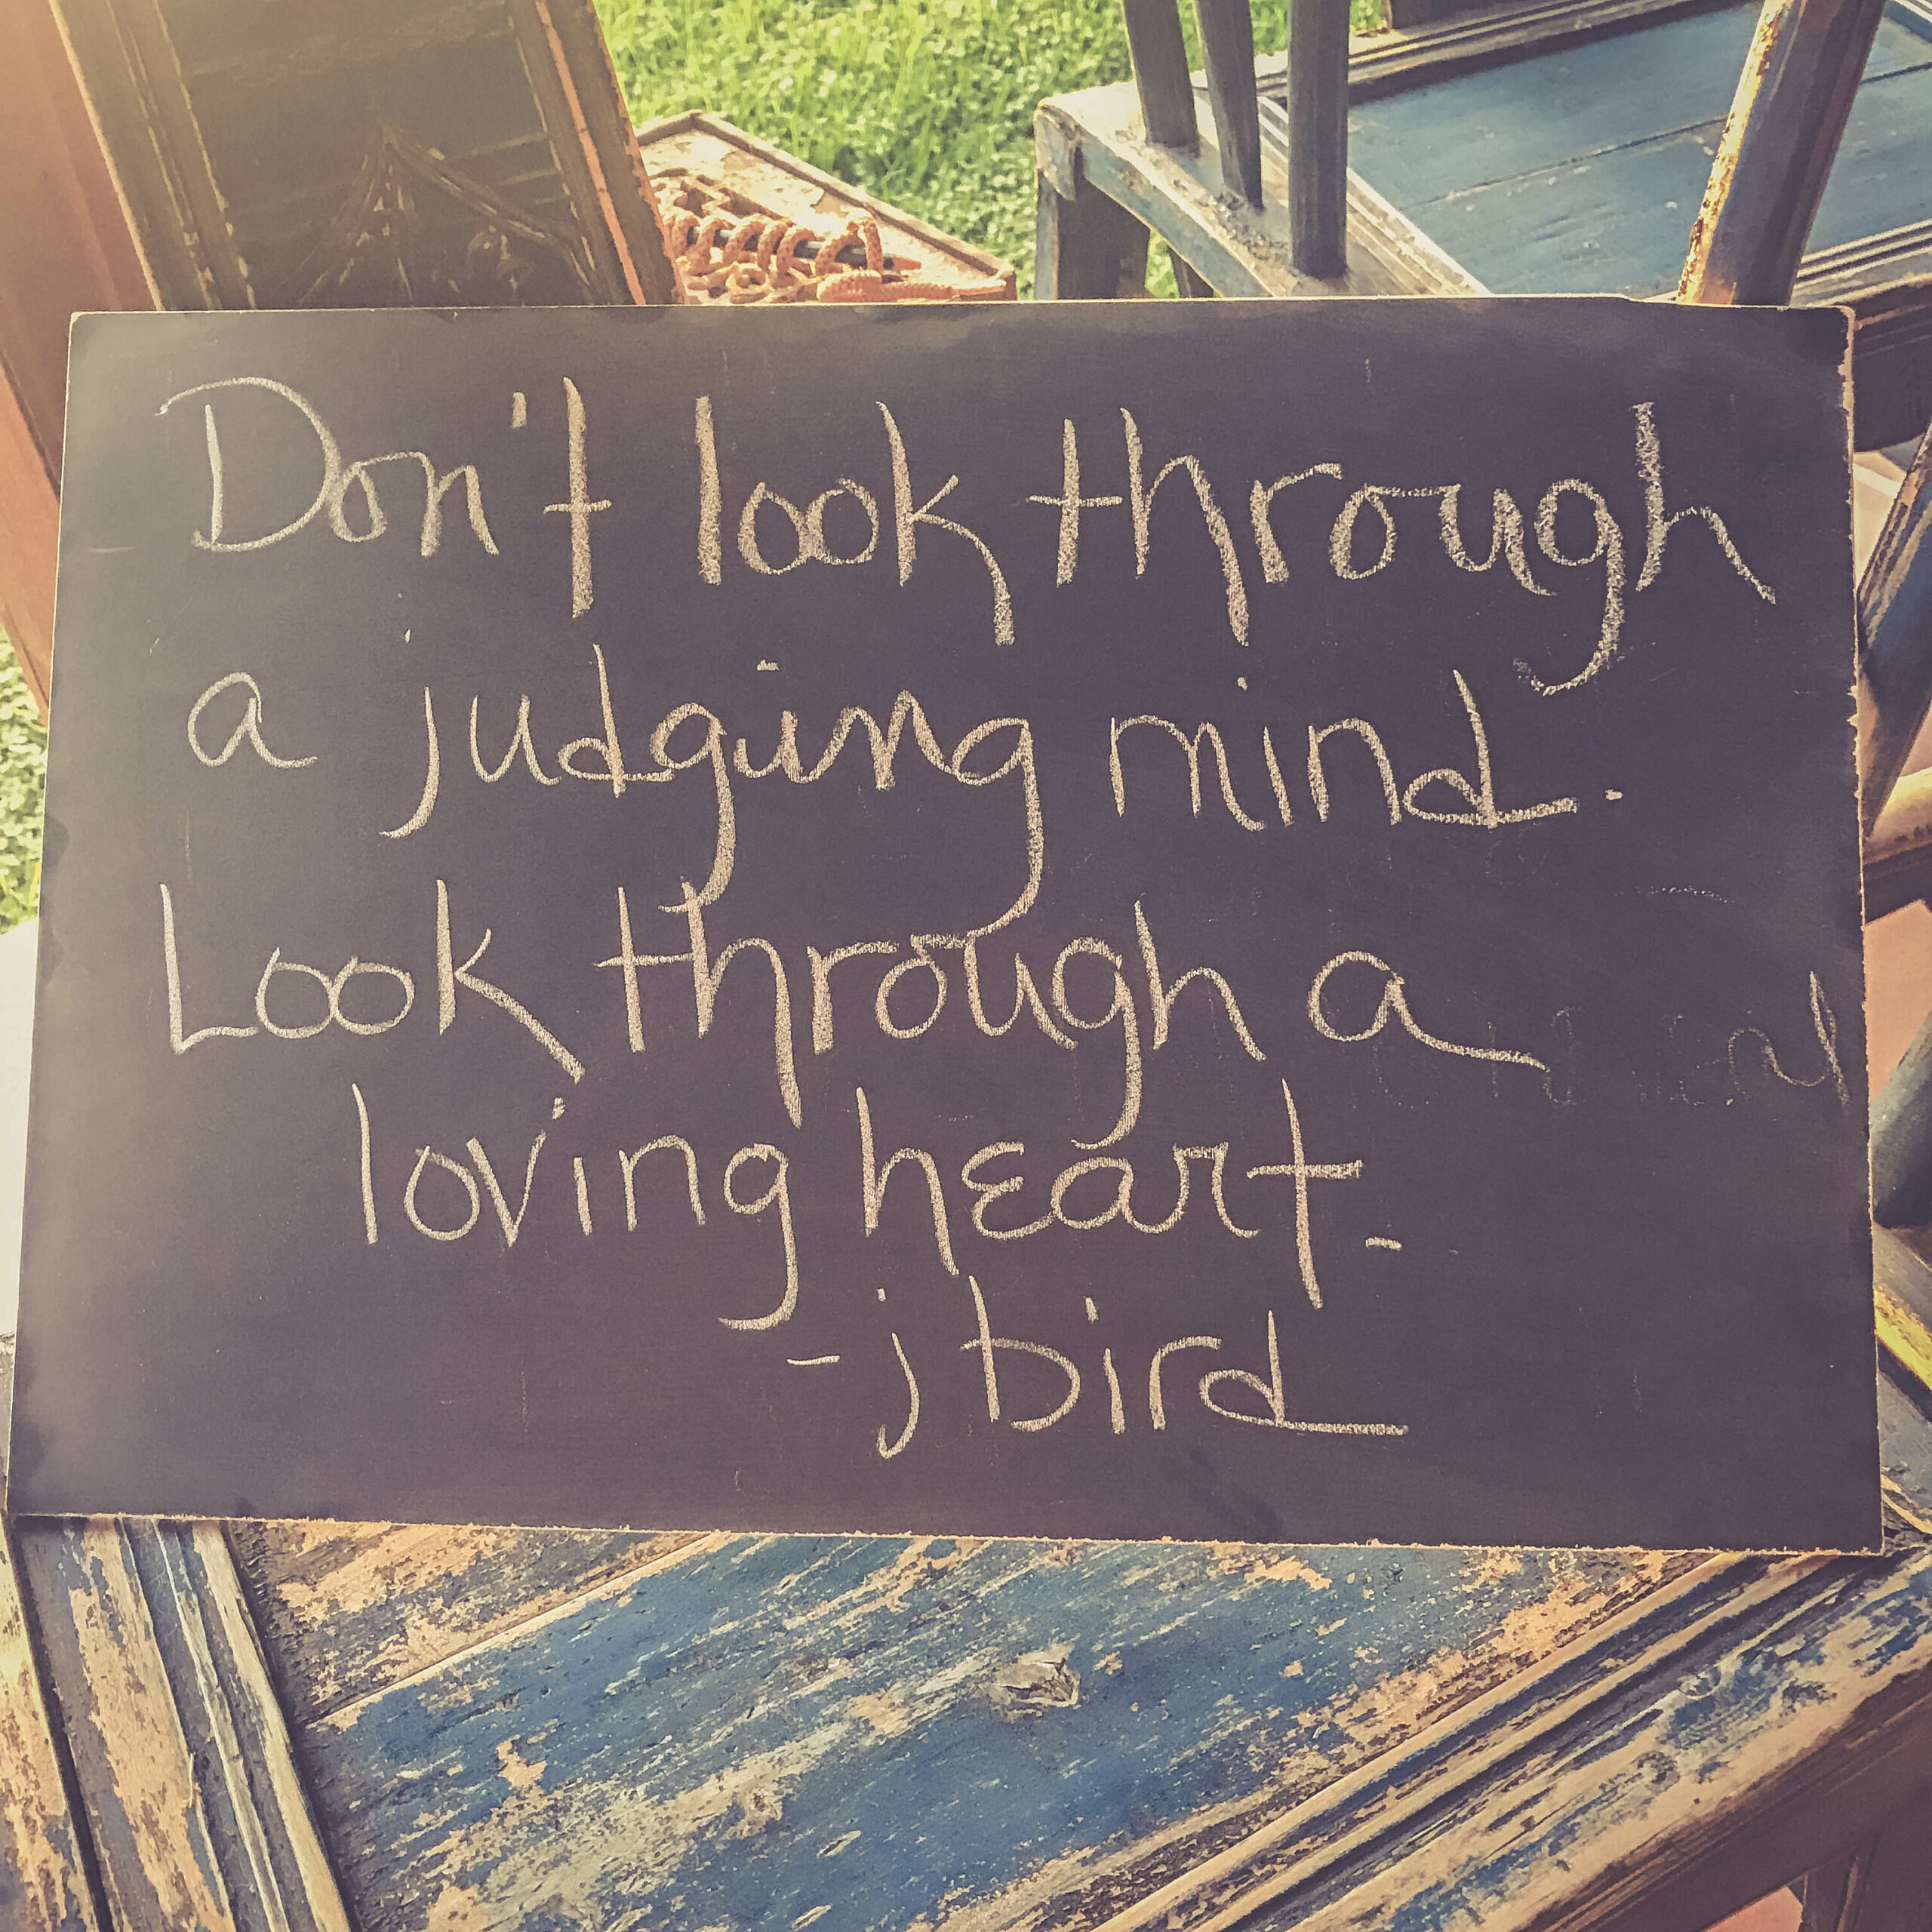 Don't look through
a judging mind.
Look through a
loving heart.
-j bird